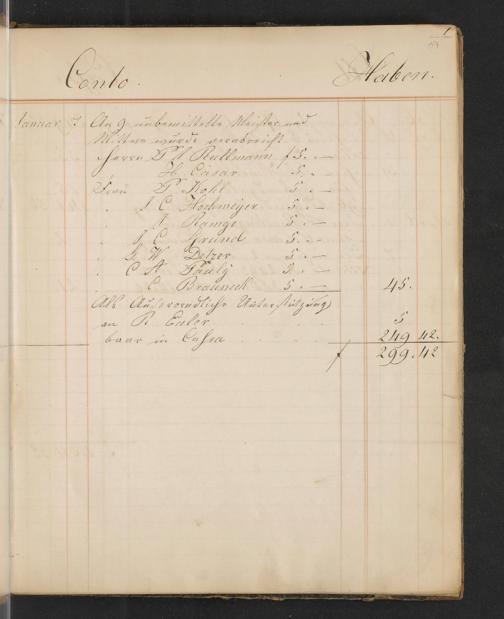 1
Conto. Haben.
Januar 7. An 9 unbemittelte Meister und
Wittwe wurde verabreicht
Herrn P. A. Rullmann f 5. —
" H. Casar 5. —
Frau P. Kohl 5. —
" J. C. Hochmeyer 5. —
" A. Range 5. —
" J. C. Gründ 5. —
" G. W. Delzer 5. —
" C. A. Pauly 5. —
" C. Brauneck 5. — 45.
Als Auserordliche Unterstützung
an P. Euler 5
baar in Cassa 249 42.
f 299.42